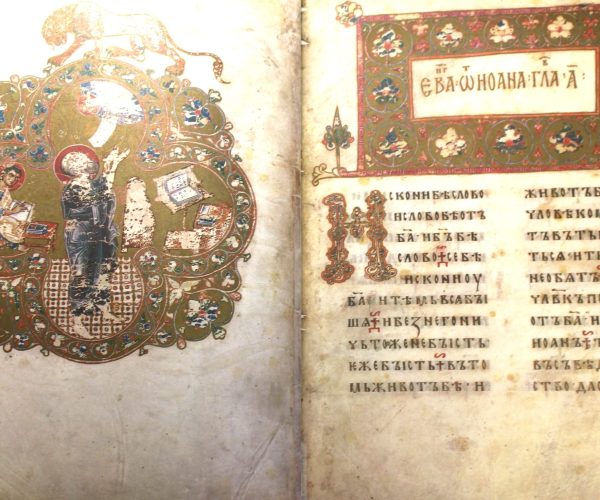 ЕВА · Ѡ ИОАНА · ГЛА · А҃ :
ИСКОНИБѢСЛОВО
ИСЛОВОБѢОТЪ
БА҃·ИБЪБѢ
СЛОВО·СЕБѢ
ИСКОНИОУ
БА҃·ИТѢМЬВСѦБЫ
ШѦ·ИБЕЗНЕГОНИ
ЧЬТОЖЕНЕБЫСТЬ
ѤЖЕБЫСТЬ·ВЪТО
МЬЖИВОТЪБѢ·И
ЖИВОТЪБ
ЧЛОВѢКОМ
ТЪВЪТЬ
ТЬСѦ·ИТЬ
НЕОБѦТЪ
ЧЛ҃ВКЪП
ОТЪБА҃·И
ИОАНЪ
ВЪСЪВѢД
СТВО·ДАС